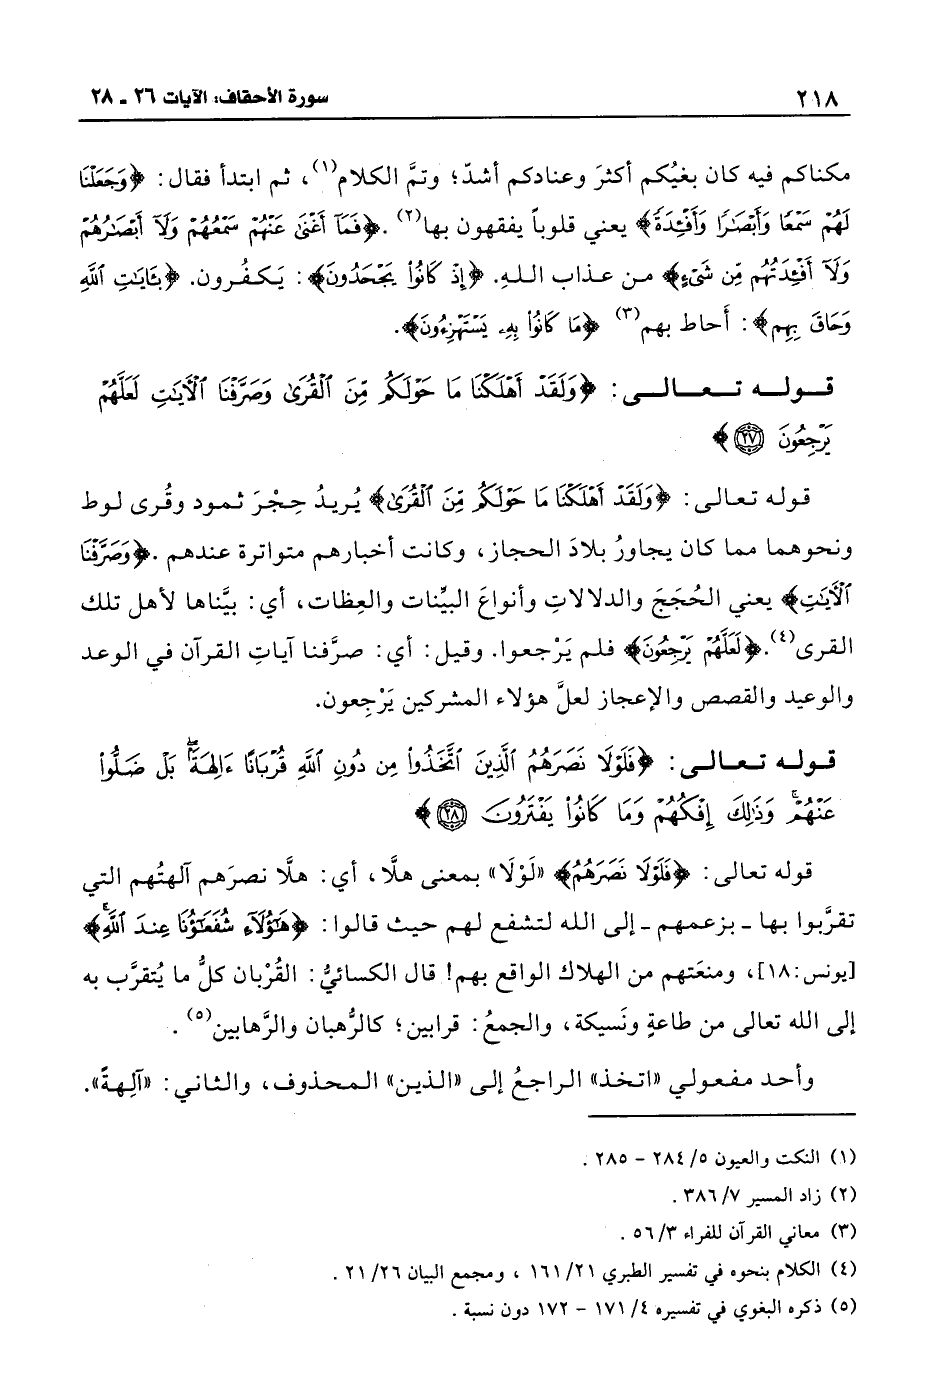 ٢١٨ سورة الأحقاف: الآيات ٢٦ - ٢٨
مكناكم فيه كان بغيُكم أكثرَ وعنادكم أشدّ؛ وتمَّ الكلام(١)، ثم ابتدأ فقال: ﴿وَجَعَلْنَا
لَهُمْ سَمْعًا وَأَبْصَٰرًا وَأَفْـِٔدَةً﴾ يعني قلوباً يفقهون بها(٢). ﴿فَمَآ أَغْنَىٰ عَنْهُمْ سَمْعُهُمْ وَلَآ أَبْصَٰرُهُمْ
وَلَآ أَفْـِٔدَتُهُم مِّن شَىْءٍ﴾ من عذاب اللهِ. ﴿إِذْ كَانُوا۟ يَجْحَدُونَ﴾: يَكفُرون. ﴿بِـَٔايَٰتِ ٱللَّهِ
وَحَاقَ بِهِم﴾: أَحاط بهم(٣) ﴿مَّا كَانُوا۟ بِهِۦ يَسْتَهْزِءُونَ﴾.
قوله تعالى: ﴿وَلَقَدْ أَهْلَكْنَا مَا حَوْلَكُم مِّنَ ٱلْقُرَىٰ وَصَرَّفْنَا ٱلْـَٔايَٰتِ لَعَلَّهُمْ
يَرْجِعُونَ ٢٧﴾
قوله تعالى: ﴿وَلَقَدْ أَهْلَكْنَا مَا حَوْلَكُم مِّنَ ٱلْقُرَىٰ﴾ يُريدُ حِجْرَ ثمود وقُرى لوط
ونحوهما مما كان يجاورُ بلادَ الحجاز، وكانت أخبارهم متواترة عندهم. ﴿وَصَرَّفْنَا
ٱلْـَٔايَٰتِ﴾ يعني الحُجَجَ والدلالاتِ وأنواعَ البيِّنات والعِظات، أي: بيَّناها لأهل تلك
القرى(٤). ﴿لَعَلَّهُمْ يَرْجِعُونَ﴾ فلم يَرْجعوا. وقيل: أي: صرَّفنا آياتِ القرآن في الوعد
والوعيد والقصص والإعجاز لعلَّ هؤلاء المشركين يَرْجِعون.
قوله تعالى: ﴿فَلَوْلَا نَصَرَهُمُ ٱلَّذِينَ ٱتَّخَذُوا۟ مِن دُونِ ٱللَّهِ قُرْبَانًا ءَالِهَةًۢ ۖ بَلْ ضَلُّوا۟
عَنْهُمْ ۚ وَذَٰلِكَ إِفْكُهُمْ وَمَا كَانُوا۟ يَفْتَرُونَ ٢٨﴾
قوله تعالى: ﴿فَلَوْلَا نَصَرَهُمُ﴾ «لَوْلَا» بمعنى هلَّا، أي: هلَّا نصرَهم آلهتُهم التي
تقرَّبوا بها - بزعمهم - إلى الله لتشفع لهم حيث قالوا: ﴿هَٰٓؤُلَآءِ شُفَعَٰٓؤُنَا عِندَ ٱللَّهِ ۚ﴾
[يونس:١٨]، ومنعَتهم من الهلاك الواقع بهم! قال الكسائيُّ: القُرْبان كلُّ ما يُتقرَّب به
إلى الله تعالى من طاعةٍ ونَسيكة، والجمعُ: قرابين؛ كالرُّهبان والرَّهابين(٥).
وأحد مفعولي «اتخذ» الراجعُ إلى «الذين» المحذوف، والثاني: «آلِهةً».
(١) النكت والعيون ٥/ ٢٨٤ - ٢٨٥ .
(٢) زاد المسير ٧/ ٣٨٦ .
(٣) معاني القرآن للفراء ٣/ ٥٦ .
(٤) الكلام بنحوه في تفسير الطبري ٢١/ ١٦١ ، ومجمع البيان ٢٦/ ٢١ .
(٥) ذكره البغوي في تفسيره ٤/ ١٧١ - ١٧٢ دون نسبة .